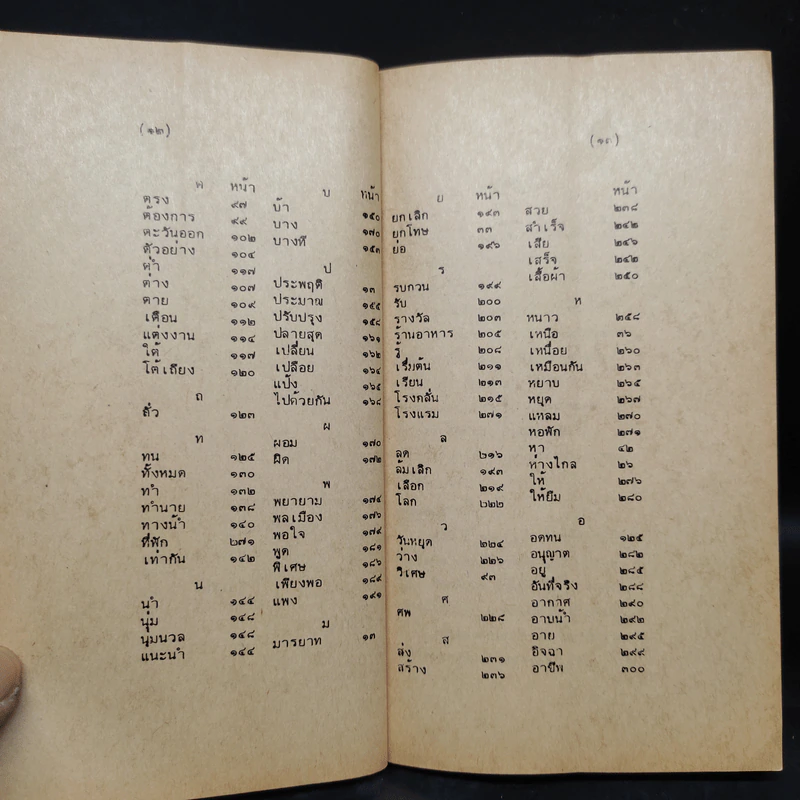 (๑๒)
ต หน้า
ตรง ๙๗
ต้องการ ๙๙
ตะวันออก ๑๐๒
ตัวอย่าง ๑๐๔
ต่ำ ๑๑๗
ต่าง ๑๐๗
ตาย ๑๐๙
เตือน ๑๑๒
แต่งงาน ๑๑๔
ใต้ ๑๑๗
โต้เถียง ๑๒๐
ถ
ถั่ว ๑๒๓
ท
ทน ๑๒๕
ทั้งหมด ๑๓๐
ทำ ๑๓๒
ทำนาย ๑๓๘
ทางน้ำ ๑๔๐
ที่พัก ๒๗๑
เท่ากัน ๑๔๒
น
นำ ๑๔๔
นุ่ม ๑๔๘
นุ่มนวล ๑๔๘
แนะนำ ๑๔๔
บ หน้า
บ้า ๑๕๐
บาง ๑๗๐
บางที ๑๕๓
ป
ประพฤติ ๑๓
ประมาณ ๑๕๕
ปรับปรุง ๑๕๘
ปลายสุด ๑๖๑
เปลี่ยน ๑๖๒
เปลือย ๑๖๔
แป้ง ๑๖๕
ไปด้วยกัน ๑๖๘
ผ
ผอม ๑๗๐
ผิด ๑๗๒
พ
พยายาม ๑๗๔
พลเมือง ๑๗๖
พอใจ ๑๗๙
พูด ๑๘๑
พิเศษ ๑๘๖
เพียงพอ ๑๘๙
แพง ๑๙๑
ม
มารยาท ๑๓
(๑๓)
ย หน้า
ยกเลิก ๑๙๓
ยกโทษ ๓๓
ย่อ ๑๙๖
ร
รบกวน ๑๙๙
รับ ๒๐๐
รางวัล ๒๐๓
ร้านอาหาร ๒๐๕
รู้ ๒๐๘
เริ่มต้น ๒๑๑
เรียน ๒๑๓
โรงกลั่น ๒๑๕
โรงแรม ๒๗๑
ล
ลด ๒๑๖
ล้มเลิก ๑๙๓
เลือก ๒๑๙
โลก ๒๒๒
ว
วันหยุด ๒๒๔
ว่าง ๒๒๖
วิเศษ ๙๓
ศ
ศพ ๒๒๘
ส
ส่ง ๒๓๑
สร้าง ๒๓๖
หน้า
สวย ๒๓๘
สำเร็จ ๒๔๒
เสีย ๒๔๖
เสร็จ ๒๔๒
เสื้อผ้า ๒๕๐
ห
หนาว ๒๕๘
เหนือ ๓๖
เหนื่อย ๒๖๐
เหมือนกัน ๒๖๓
หยาบ ๒๖๕
หยุด ๒๖๗
แหลม ๒๗๐
หอพัก ๒๗๑
หา ๔๒
ห่างไกล ๒๖
ให้ ๒๗๖
ให้ยืม ๒๘๐
อ
อดทน ๑๒๕
อนุญาต ๒๘๒
อยู่ ๒๘๕
อันที่จริง ๒๘๘
อากาศ ๒๙๐
อาบน้ำ ๒๙๒
อาย ๒๙๕
อิจฉา ๒๙๙
อาชีพ ๓๐๐